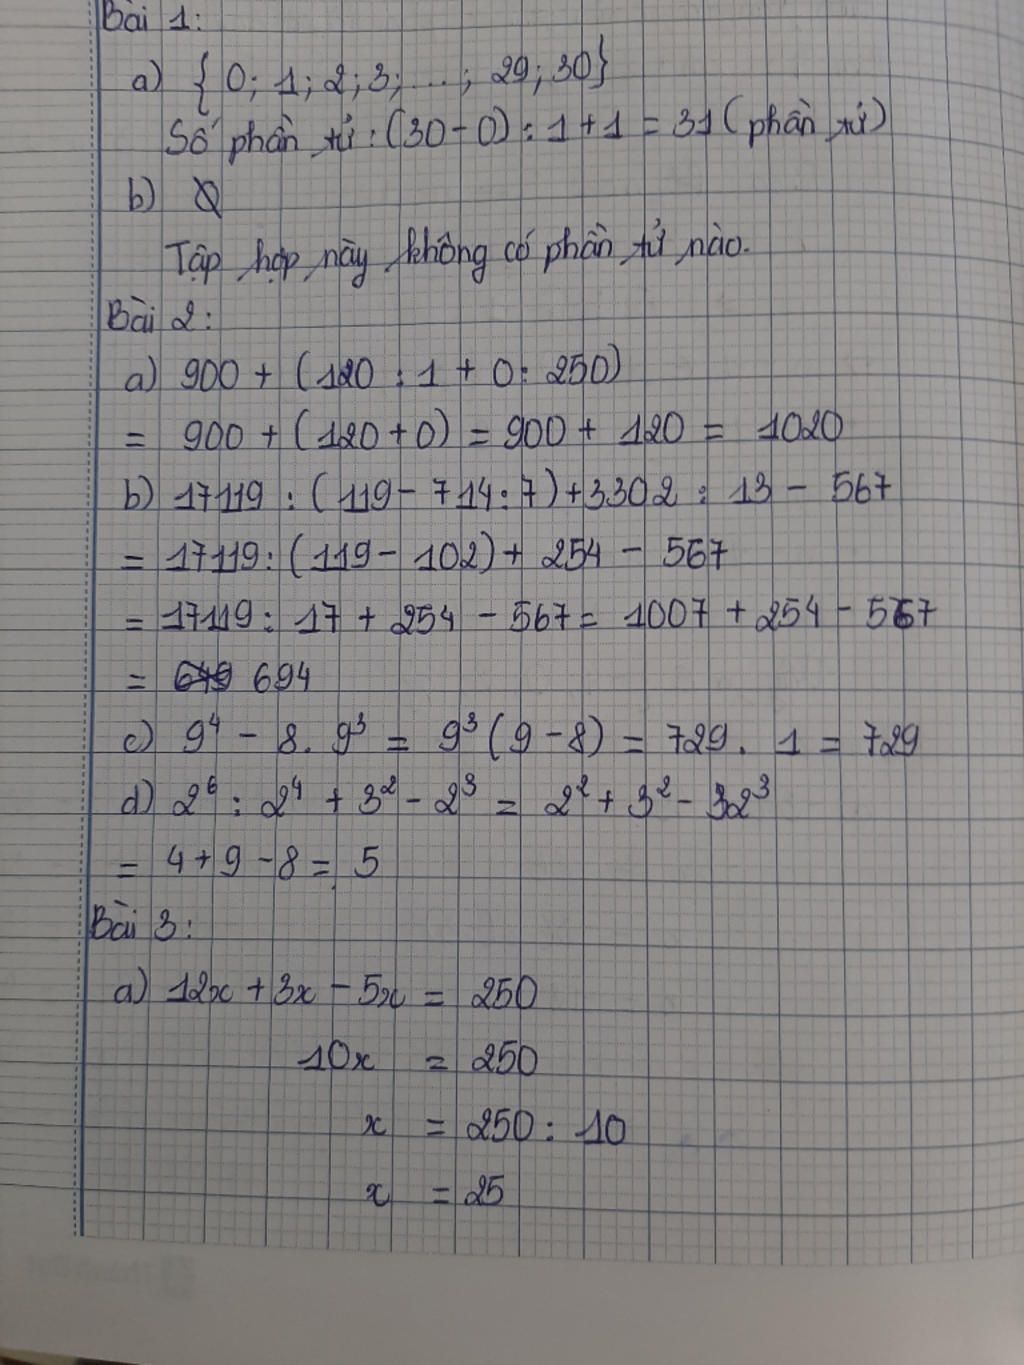 Bài 1:
a) { 0; 1; 2; 3; ...; 29; 30}
Số phần tử: (30 - 0) : 1 + 1 = 31 (phần tử)
b) ∅
Tập hợp này không có phần tử nào.
Bài 2:
a) 900 + (120 : 1 + 0 : 250)
= 900 + (120 + 0) = 900 + 120 = 1020
b) 17119 : (119 - 714 : 7) + 3302 : 13 - 567
= 17119 : (119 - 102) + 254 - 567
= 17119 : 17 + 254 - 567 = 1007 + 254 - 567
= 694
c) 9⁴ - 8. 9³ = 9³ (9 - 8) = 729. 1 = 729
d) 2⁶ : 2⁴ + 3² - 2³ = 2² + 3² - 2³
= 4 + 9 - 8 = 5
Bài 3:
a) 12x + 3x - 5x = 250
10x = 250
x = 250 : 10
x = 25